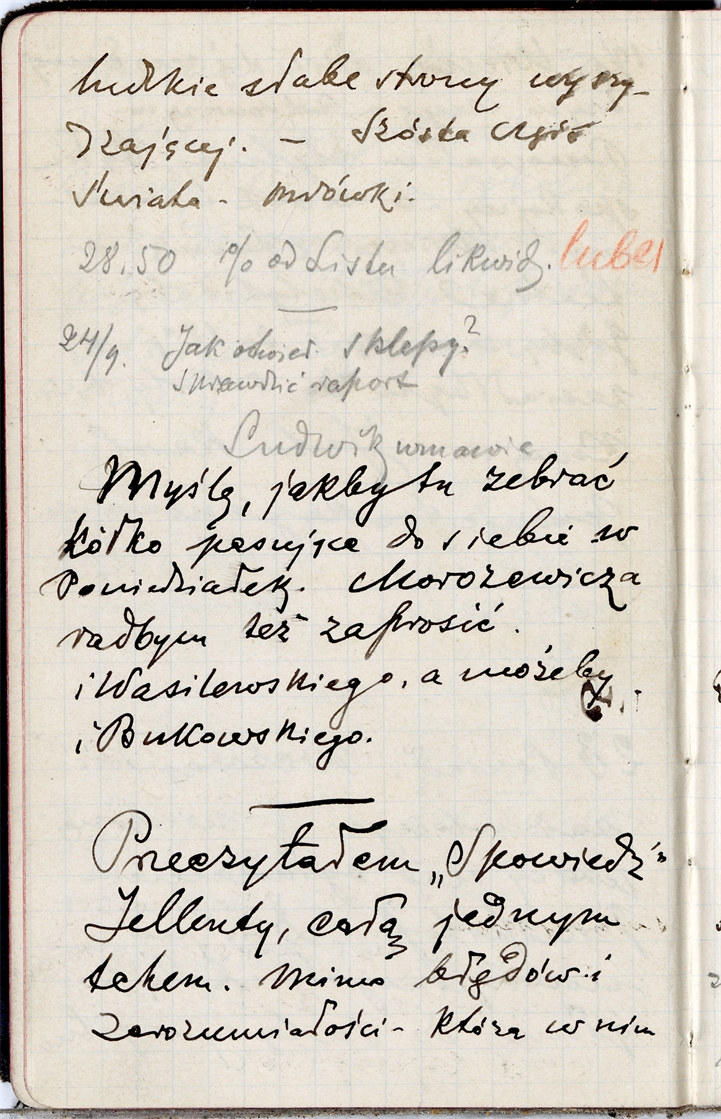 ludzkie słabe strony wyszy-
dzającej. – Szósta część
świata – mrówki.
28.50 % od Listu likwid. lubel
24/9. Jak otwier. sklepy?
sprawdzić raport
Ludwik umawia
Myślę, jakby tu zebrać
kółko pasujące do siebie w
Poniedziałek. Morozewicza
radbym też zaprosić.
i Wasilewskiego, a możeby
i Bukowskiego.
Przeczytałem „Spowiedź”
Jellenty, całą jednym
tchem. Mimo błędów i
zarozumiałości – która w nim